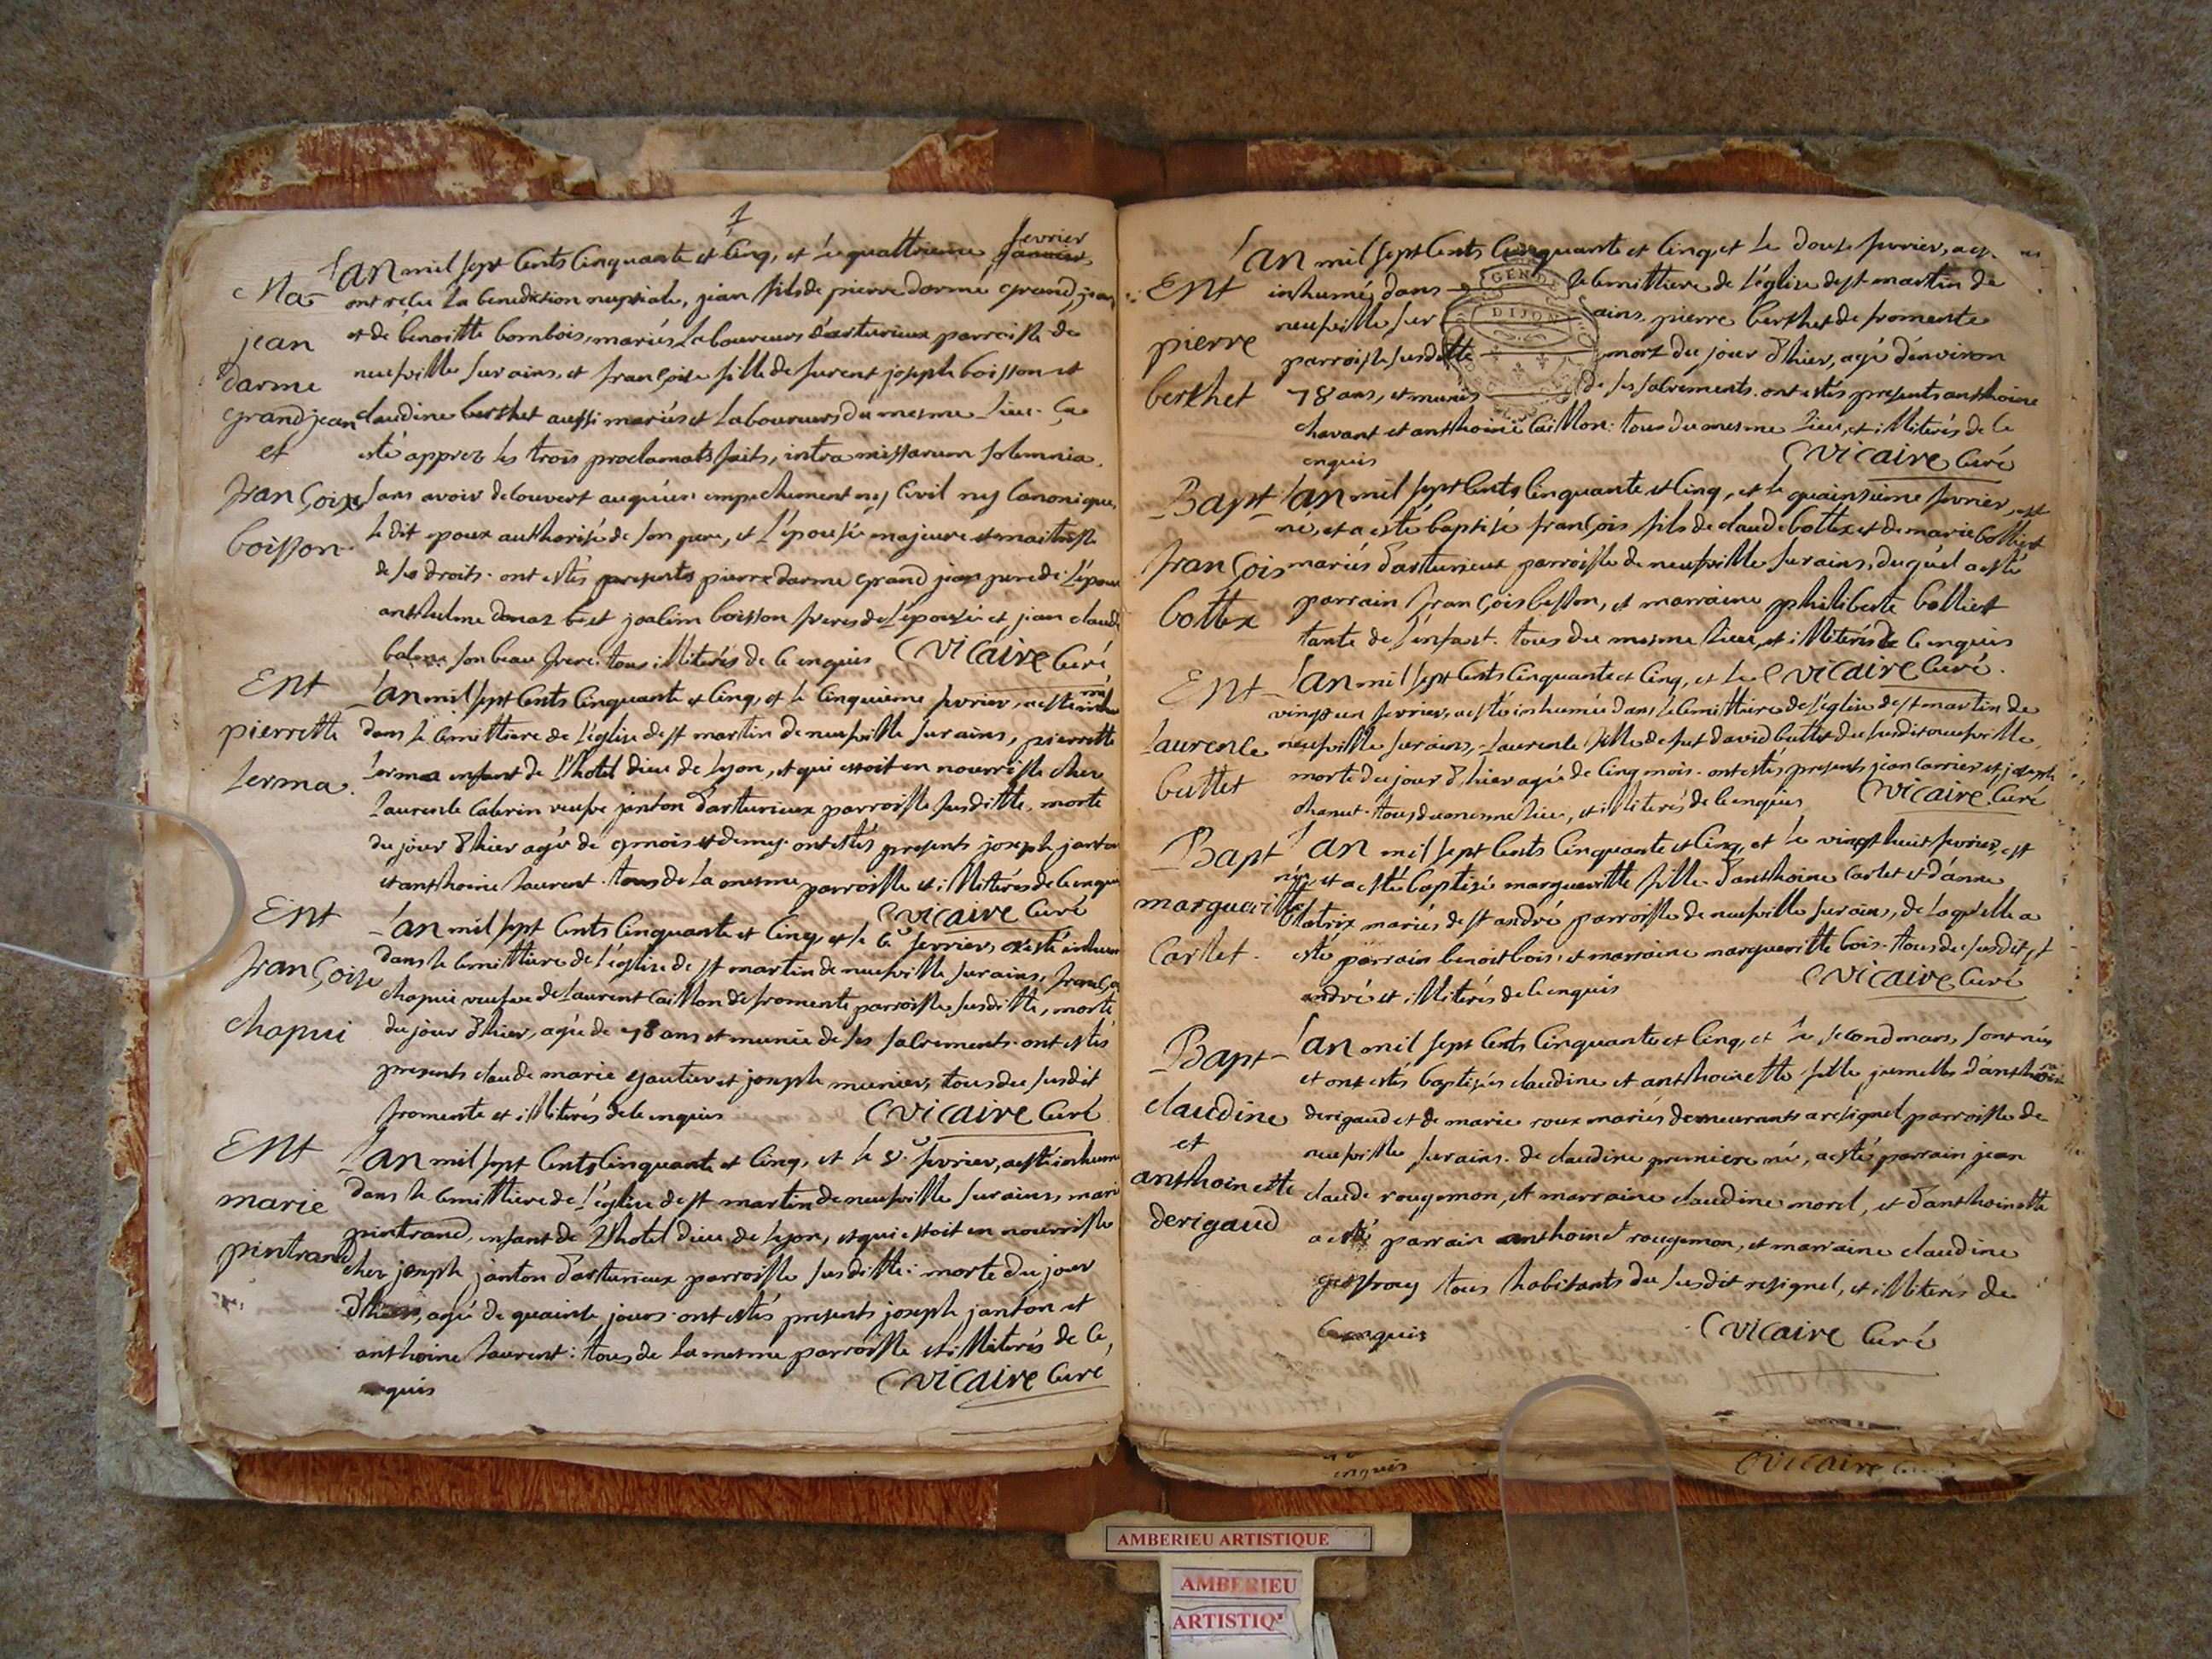 1
fevrier
L'an mil sept Cents Cinquante et Cinq, et le quattrieme janvier
Mar
ont reçeu la benediction nuptiale, jean fils de pierre darme grand jean
jean
et de benoitte bombois, mariés Laboureurs d'arturieux parroisse de
darme
neufville sur ains, et françoise fille de furent joseph boisson et
grand jean
claudine berthet aussi mariés et Laboureurs du mesme Lieu. Ça
et
esté apprez les trois proclamats faits, intra missarum solemnia.
françoise
sans avoir decouvert auqu'un empechement ny Civil ny Canonique,
boisson
Le dit epoux authorisé de son pere, et L'épousée majeure et maitresse
de ses droits. ont estés presents pierre darme grand jean pere de L'époux
anthelme et joachim boisson freres de L'épousée et jean claude
son beau frere. tous illiterés de ce enquis Vicaire Curé
Ent
L'an mil sept Cents Cinquante et Cinq, et le Cinquieme fevrier, a esté
pierrette
dans le Cemittiere de L'église de st martin de neufville sur ains, pierrette
Lerma.
Lerma enfant de L'hotel dieu de Lyon, et qui estoit en nourrisse chez
Laurence Caberin veufve janton d'arturieux parroisse susditte, morte
du jour d'hier agée de 9 mois et demy. ont estés presents joseph janton
et anthoine Laurent. tous de la mesme parroisse et illiterés de ce enquis
Vicaire Curé
Ent
L'an mil sept Cents Cinquante et Cinq, et le 6e fevrier, a esté inhumée
françoise
dans le Cemittiere de L'église de st martin de neufville sur ains, françoise
chapui veufve de Laurent Caillon de fromente parroisse susditte, morte
chapui
du jour d'hier, agée de 78 ans et munie de ses sacrements. ont estés
presents claude marie gautier et joseph munier, tous du susdit
fromente et illiterés de ce enquis Vicaire Curé
Ent
L'an mil sept Cents Cinquante et Cinq, et le fevrier, a esté inhumée
marie
dans le Cemittiere de L'église de st martin de neufville sur ains, marie
pintrand
pintrand, enfant de L'hotel dieu de Lyon, et qui estoit en nourrisse
chez joseph janton d'arturieux parroisse susditte: morte du jour
d'hier, agée de quainse jours. ont estés presents joseph janton et
anthoine Laurent: tous de la mesme parroisse et illiterés de Ce,
enquis Vicaire Curé
L'an mil sept Cents Cinquante et Cinq, et le douse fevrier, a esté
Ent
inhumé, dans le Cemittiere de L'église de st martin de
neufville sur ains, pierre berthet de fromente
pierre
parroisse susditte mort du jour d'hier, agé d'environ
berthet
78 ans, et munis de ses sacrements. ont estés presents anthoine
chavant et anthoine Caillon: tous du mesme Lieu, et illiterés de ce
enquis Vicaire Curé
GEND
DIJON
Bapt
L'an mil sept Cents Cinquante et Cinq, et le quainsieme fevrier, est
né, et a esté baptisé françois fils de claude bottex et de marie bolliet
françois
mariés d'arturieux parroisse de neufville sur ains, duquel a esté
bottex
parrain françois besson, et marraine philiberte bolliet
tante de L'enfant. tous du mesme Lieu, et illiterés de Ce enquis
Ent
L'an mil sept Cents Cinquante et Cinq, et le Vicaire Curé.
vingt un fevrier, a esté inhumée dans le Cemittiere de L'église de st martin de
Laurence
neufville sur ains, Laurence fille de fut david buttet du susdit neufville,
buttet
morte du jour d'hier agée de Cinq mois. ont estés presents jean Carrier et joseph
chanut. tous du mesme Lieu, et illiterés de Ce enquis Vicaire Curé
Bapt
L'an mil sept Cents Cinquante et Cinq, et le vingt huit fevrier, est
née et a esté baptisée margueritte fille d'anthoine Carlet et d'anne
margueritte
mariés de st andré parroisse de neufville sur ains, de Laquelle a
Carlet.
esté parrain benoit bois, et marraine margueritte bois. tous du susdit st
andré et illiterés de Ce enquis Vicaire Curé
Bapt
L'an mil sept Cents Cinquante et Cinq, et le second mars, sont nées
et ont estés baptisées claudine et anthoinette fille jumelles d'anthoine
claudine
derigaud et de marie roux mariés demeurants a resignel parroisse de
et
neufville sur ains. de claudine premiere née, a esté parrain jean
anthoinette
claude rougemon, et marraine claudine morel, et d'anthoinette
derigaud
a esté parrain anthoine rougemon, et marraine claudine
geoffrouy tous habitants du susdit resignel, et illiterés de
Ce enquis Vicaire Curé
enquis Vicaire
AMBERIEU ARTISTIQUE
AMBERIEU
ARTISTIQ